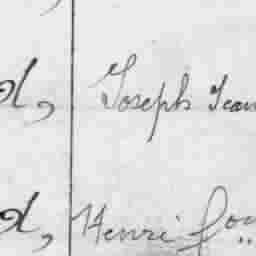 d, Joseph Jean
d, Henri